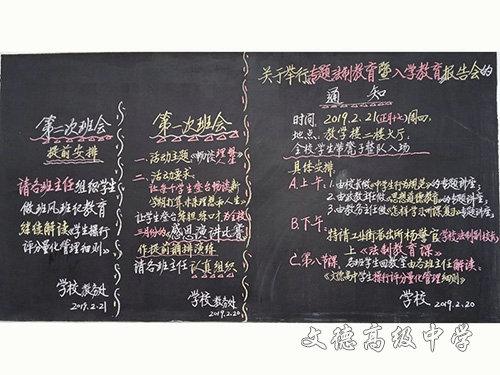 第二次班会
提前安排
请各班主任组织学生
做班风班纪教育
继续解读《学生操行
评分量化管理细则》
学校教务处
2019.2.21
第一次班会
一.活动主题《畅谈理想》
二.活动要求：
让每个学生登台畅谈新
学期打算,本人理想和人生。
让学生登台锻炼口才,为全校
三月份的感恩演讲比赛
作提前翻排演练
请各班主任认真组织
学校教务处
2019.2.20
关于举行专题法制教育暨入学教育报告会的
通知
时间：2019.2.21(正月十七)周四。
地点：教学楼二楼大厅。
全校学生带凳子整队入场
具体安排：
A.上午：1.由校长做《中学生行为规范》的专题讲座；
2.由政教主任做《思想道德教育》的专题讲座；
3.由教务主任做《怎样学习听课》的专题讲座；
B.下午：
特请工业街派出所杨警官
上《法制教育课》
C.第八节课,各班学生回教室由各班主任解读：
《文德高中学生操行评分量化管理细则》
学校 2019.2.20
文德高级中学